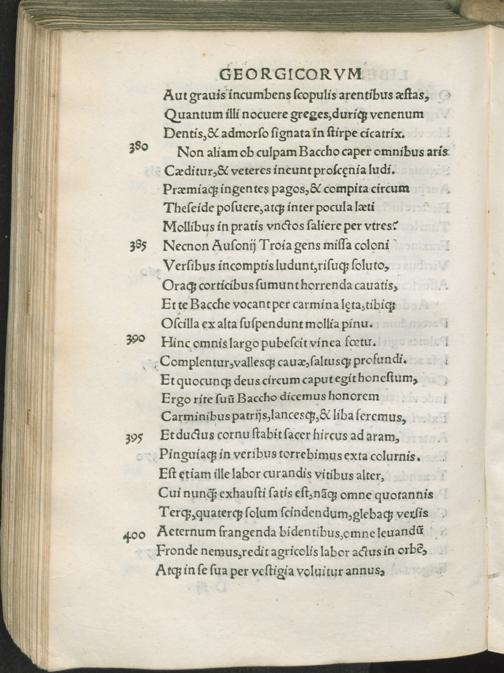 GEORGICORVM
Aut grauis incumbens scopulis arentibus æstas,
Quantum illi nocuere greges, duriq; venenum
Dentis, & admorso signata in stirpe cicatrix.
380 Non aliam ob culpam Baccho caper omnibus aris
Cæditur, & veteres ineunt proscęnia ludi.
Præmiaq; ingentes pagos, & compita circum
Theseide posuere, atq; inter pocula læti
Mollibus in pratis vnctos saliere per vtres?
385 Necnon Ausonij Troia gens missa coloni
Versibus incomptis ludunt, risuq; soluto,
Oraq; corticibus sumunt horrenda cauatis,
Et te Bacche vocant per carmina lęta, tibiq;
Oscilla ex alta suspendunt mollia pinu.
390 Hinc omnis largo pubescit vinea fœtu.
Complentur, vallesq; cauæ, saltusq; profundi.
Et quocunq; deus circum caput egit honestum,
Ergo rite suū Baccho dicemus honorem
Carminibus patrijs, lancesq;, & liba feremus,
395 Et ductus cornu stabit sacer hircus ad aram,
Pinguiaq; in veribus torrebimus exta colurnis.
Est etiam ille labor curandis vitibus alter,
Cui nunq̄ exhausti satis est, nāq; omne quotannis
Terq;, quaterq; solum scindendum, glebaq; versis
400 Aeternum frangenda bidentibus, omne leuandū
Fronde nemus, redit agricolis labor actus in orbē,
Atq; in se sua per vestigia voluitur annus,